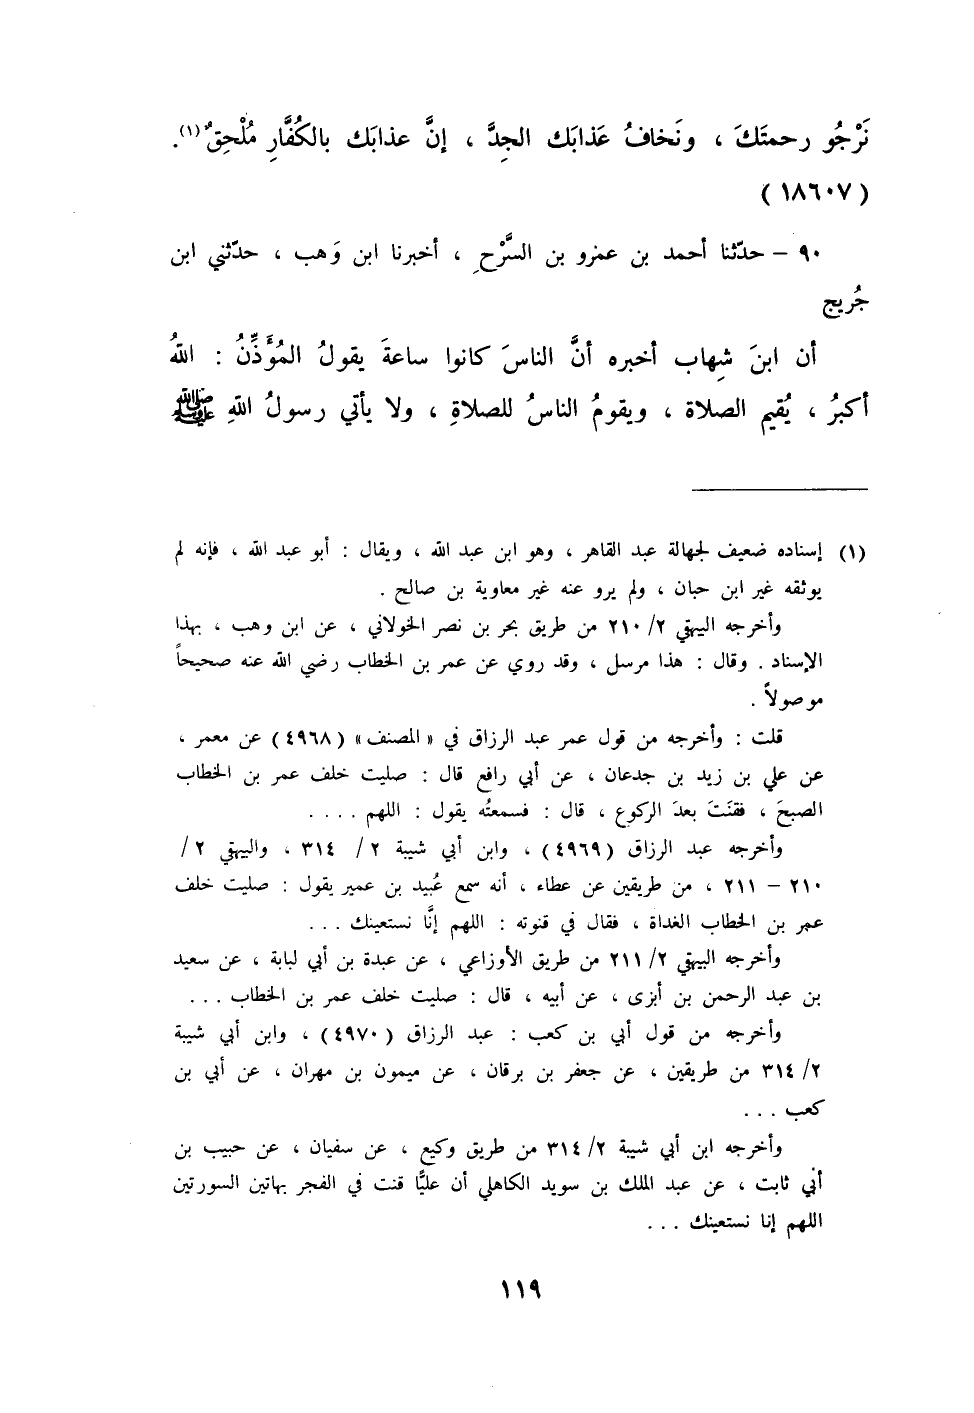 نَرْجُو رحمتَكَ ، ونَخافُ عَذابَك الجِدَّ ، إنَّ عذابَك بالكُفَّارِ مُلْحِقٌ(١).
(١٨٦٠٧)
٩٠ – حدّثنا أحمد بن عمزو بن السَّرْحِ ، أخبرنا ابن وَهب ، حدّثني ابن
جُريج
أن ابنَ شِهاب أخبره أنَّ الناسَ كانوا ساعةَ يقولُ المُؤَذِّنُ : اللهُ
أكبرُ ، يُقيم الصلاة ، ويقومُ الناسُ للصلاةِ ، ولا يأتي رسولُ اللهِ ﷺ
(١) إسناده ضعيف لجهالة عبد القاهر ، وهو ابن عبد الله ، ويقال : أبو عبد الله ، فإنه لم
يوثقه غير ابن حبان ، ولم يرو عنه غير معاوية بن صالح .
وأخرجه البيهقي ٢/ ٢١٠ من طريق بحر بن نصر الخولاني ، عن ابن وهب ، بهذا
الإسناد . وقال : هذا مرسل ، وقد روي عن عمر بن الخطاب رضي الله عنه صحيحاً
موصولاً .
قلت : وأخرجه من قول عمر عبد الرزاق في «المصنف» (٤٩٦٨) عن معمر ،
عن علي بن زيد بن جدعان ، عن أبي رافع قال : صليت خلف عمر بن الخطاب
الصبحَ ، فقنَتَ بعدَ الركوع ، قال : فسمعتُه يقول : اللهم ....
وأخرجه عبد الرزاق (٤٩٦٩) ، وابن أبي شيبة ٢/ ٣١٤ ، والبيهقي ٢/
٢١٠ – ٢١١ ، من طريقين عن عطاء ، أنه سمع عُبيد بن عمير يقول : صليت خلف
عمر بن الخطاب الغداة ، فقال في قنوته : اللهم إنَّا نستعينك ...
وأخرجه البيهقي ٢/ ٢١١ من طريق الأوزاعي ، عن عبدة بن أبي لبابة ، عن سعيد
بن عبد الرحمن بن أبزى ، عن أبيه ، قال : صليت خلف عمر بن الخطاب ...
وأخرجه من قول أبي بن كعب : عبد الرزاق (٤٩٧٠) ، وابن أبي شيبة
٢/ ٣١٤ من طريقين ، عن جعفر بن برقان ، عن ميمون بن مهران ، عن أبي بن
كعب ...
وأخرجه ابن أبي شيبة ٢/ ٣١٤ من طريق وكيع ، عن سفيان ، عن حبيب بن
أبي ثابت ، عن عبد الملك بن سويد الكاهلي أن عليًّا قنت في الفجر بهاتين السورتين
اللهم إنا نستعينك ...
١١٩